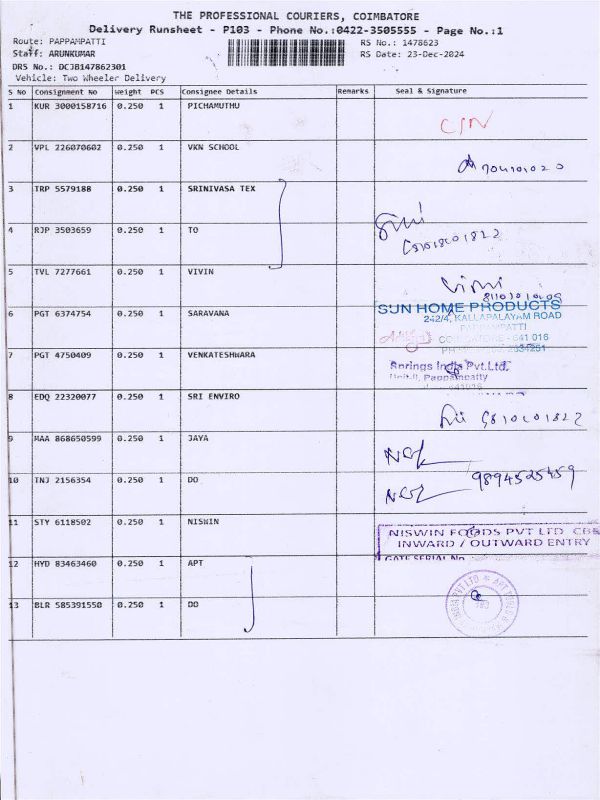 THE PROFESSIONAL COURIERS, COIMBATORE
Delivery Runsheet - P103 - Phone No.:0422-3505555 - Page No.:1
Route: PAPPAMPATTI
RS No.: 1478623
Staff: ARUNKUMAR
RS Date: 23-Dec-2024
DRS No.: DCJB147862301
Vehicle: Two Wheeler Delivery
S No Consignment No Weight PCS Consignee Details Remarks Seal & Signature
1 KUR 3000158716 0.250 1 PICHAMUTHU
2 VPL 226070602 0.250 1 VKN SCHOOL
3 TRP 5579188 0.250 1 SRINIVASA TEX
4 RJP 3503659 0.250 1 TO
5 TVL 7277661 0.250 1 VIVIN
6 PGT 6374754 0.250 1 SARAVANA
SUN HOME PRODUCTS
242/4, KALLAPALAYAM ROAD
PAPPAMPATTI
COIMBATORE - 641 016
7 PGT 4750409 0.250 1 VENKATESHWARA
Springs India Pvt.Ltd,
Unit-II, Pappampatty
8 EDQ 22320077 0.250 1 SRI ENVIRO
9 MAA 868650599 0.250 1 JAYA
10 TNJ 2156354 0.250 1 DO
9894525459
11 STY 6118502 0.250 1 NISWIN
NISWIN FOODS PVT LTD CBE
INWARD / OUTWARD ENTRY
GATE SERIAL No
12 HYD 83463460 0.250 1 APT
13 BLR 585391550 0.250 1 DO